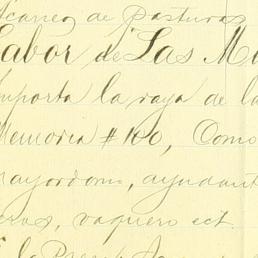 de Pasturas
Labor de Las M
importa la raya de la
Memoria #100, Como
mayordomo, ayudant
vaquero ect.
la